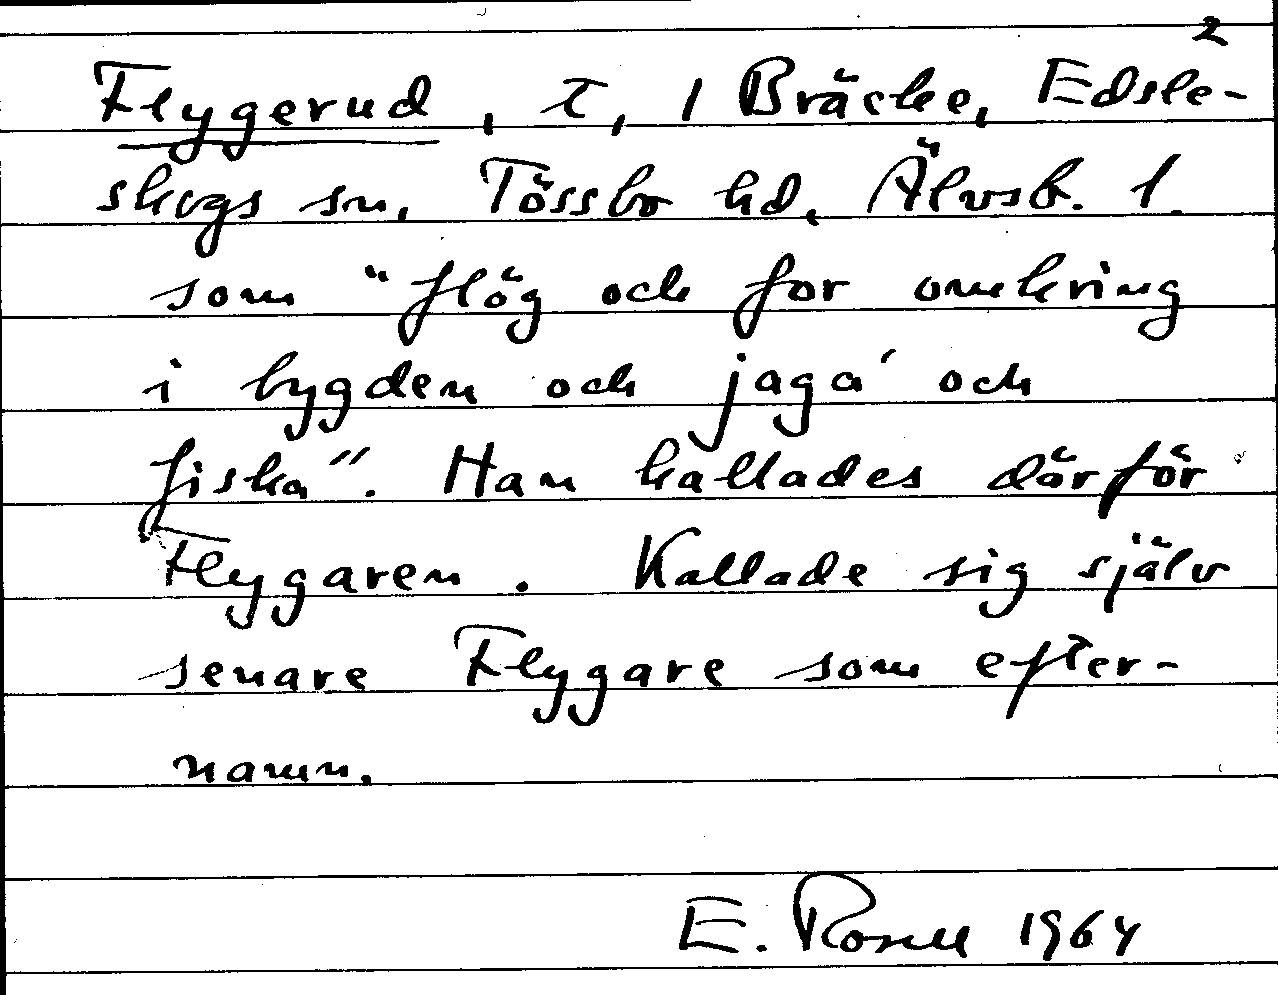 2
Flygerud, τ, 1 Bräcke, Edsle-
skogs sn, Tössbo hd, Älvsb. l.
som "flög och for omkring
i bygden och jaga' och
fiska". Han kallades därför
Flygaren. Kallade sig själv
senare Flygare som efter-
namn.
E. Rosell 1964